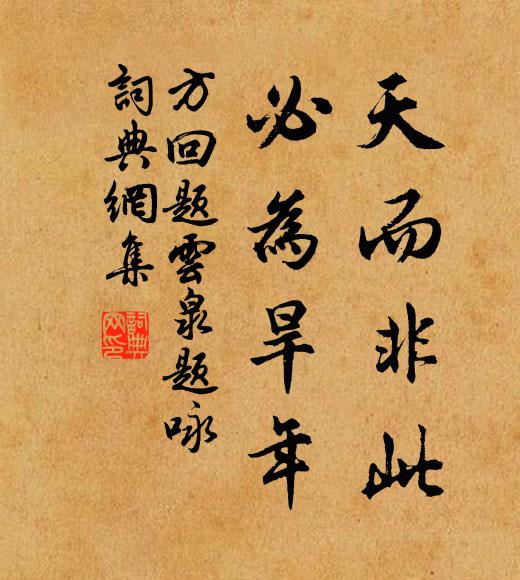 天而非此
必為旱年
方回題雲泉題咏
詞典網集
詞典网印